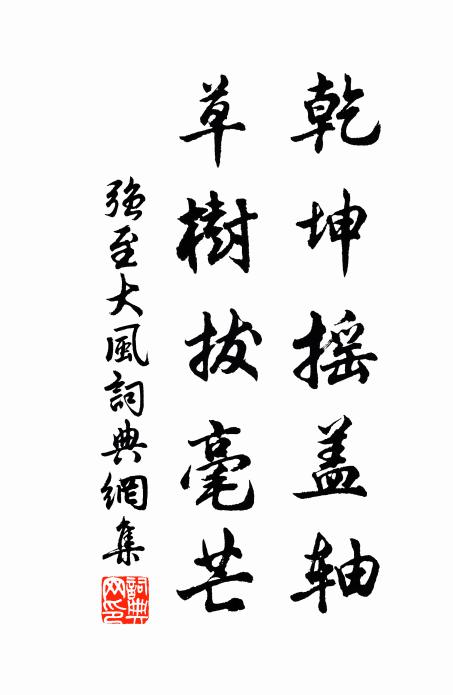 乾坤摇盖轴
草樹拔毫芒
强至大風詞典網集
詞典網印